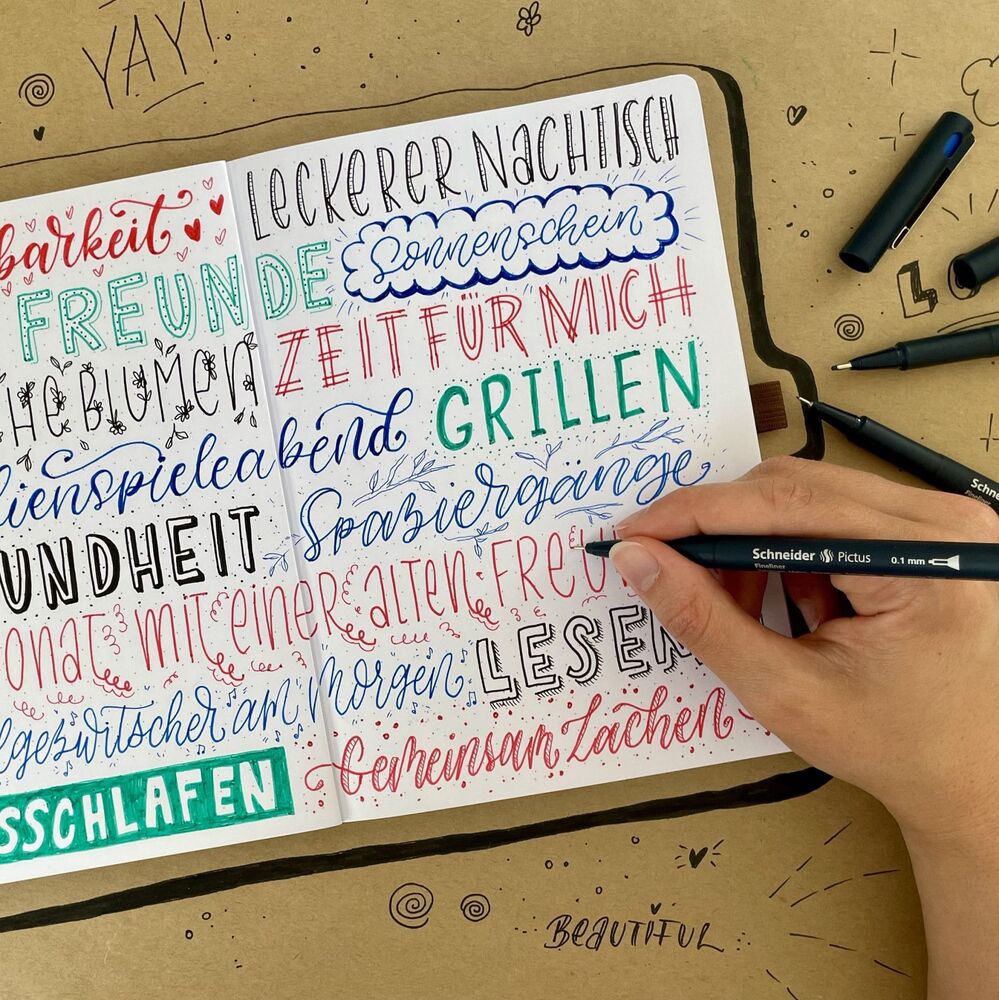 YAY!
LECKERER NACHTISCH
barkeit
Sonnenschein
FREUNDE
ZEIT FÜR MICH
HE BLUMEN
GRILLEN
lienspieleabend
Spaziergänge
UNDHEIT
onat mit einer alten FREU
LESEN
lgezwitscher am Morgen
Gemeinsam Lachen
SSCHLAFEN
LO
Schneider
Fineliner
Schneider Pictus 0.1 mm
Fineliner
BEAUTIFUL